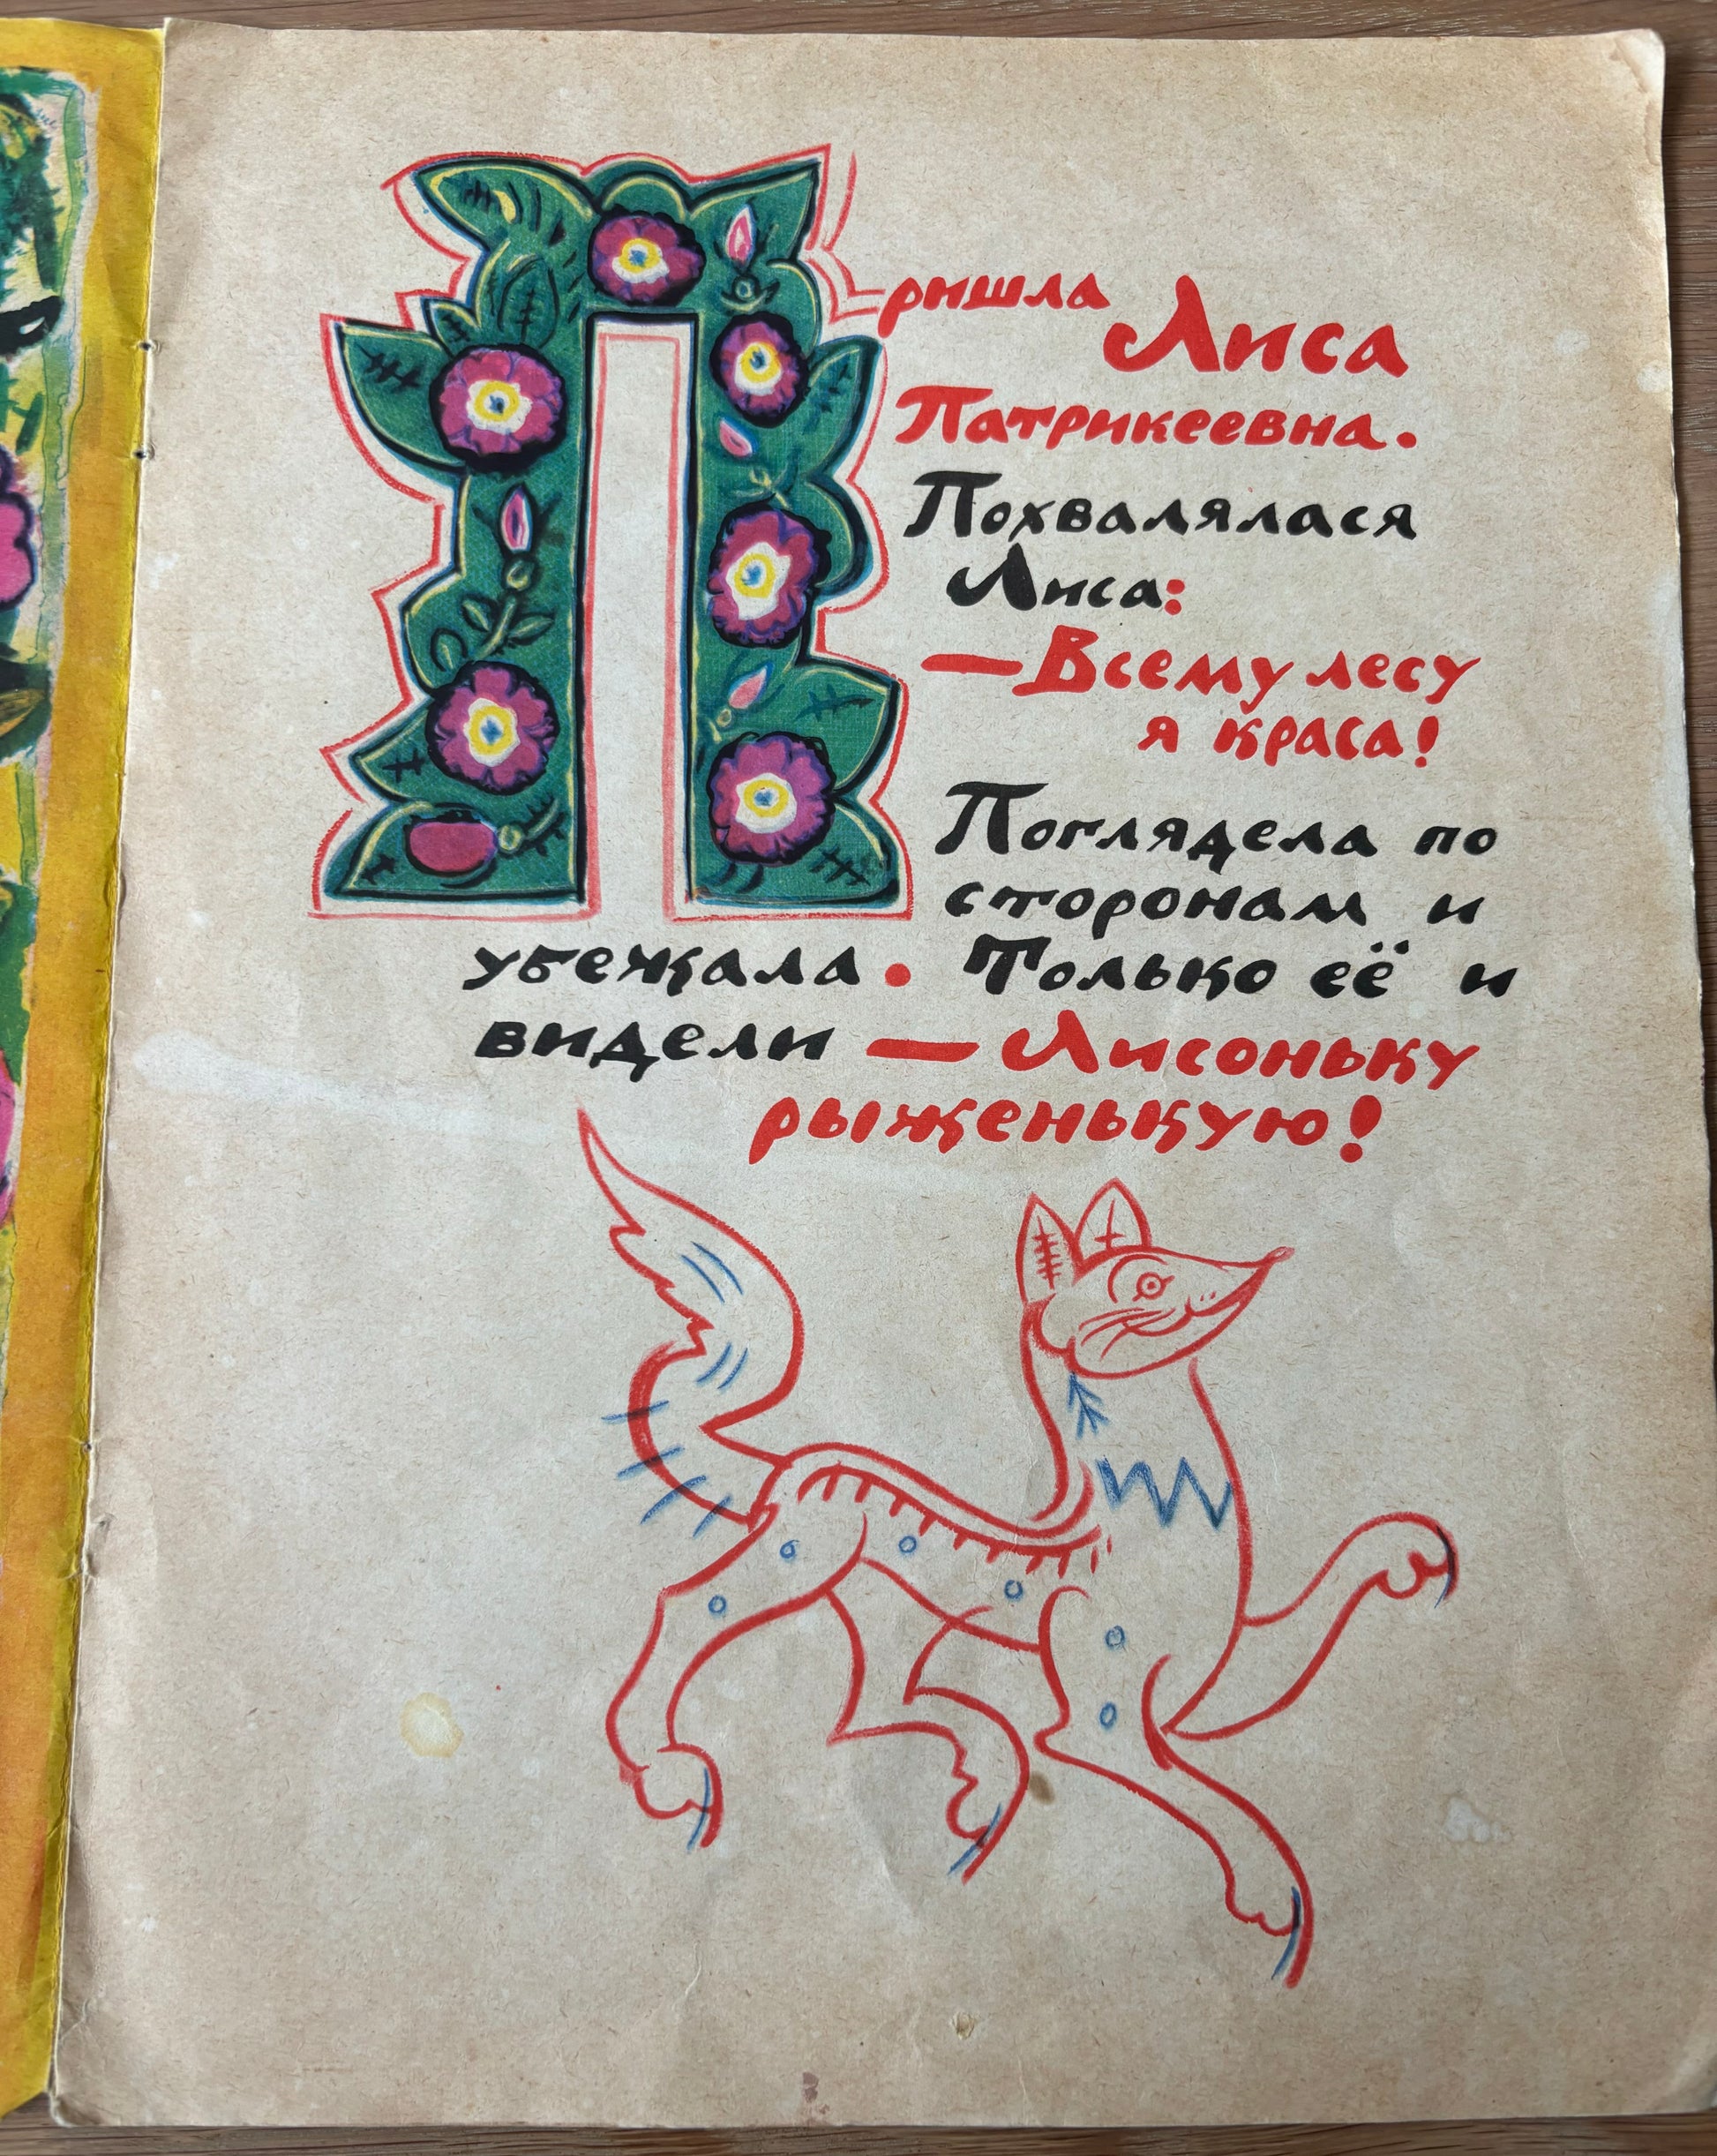 Пришла Лиса
Патрикеевна.
Похвалялася
Лиса:
— Всему лесу
я краса!
Поглядела по
сторонам и
убежала. Только её и
видели — Лисоньку
рыженькую!